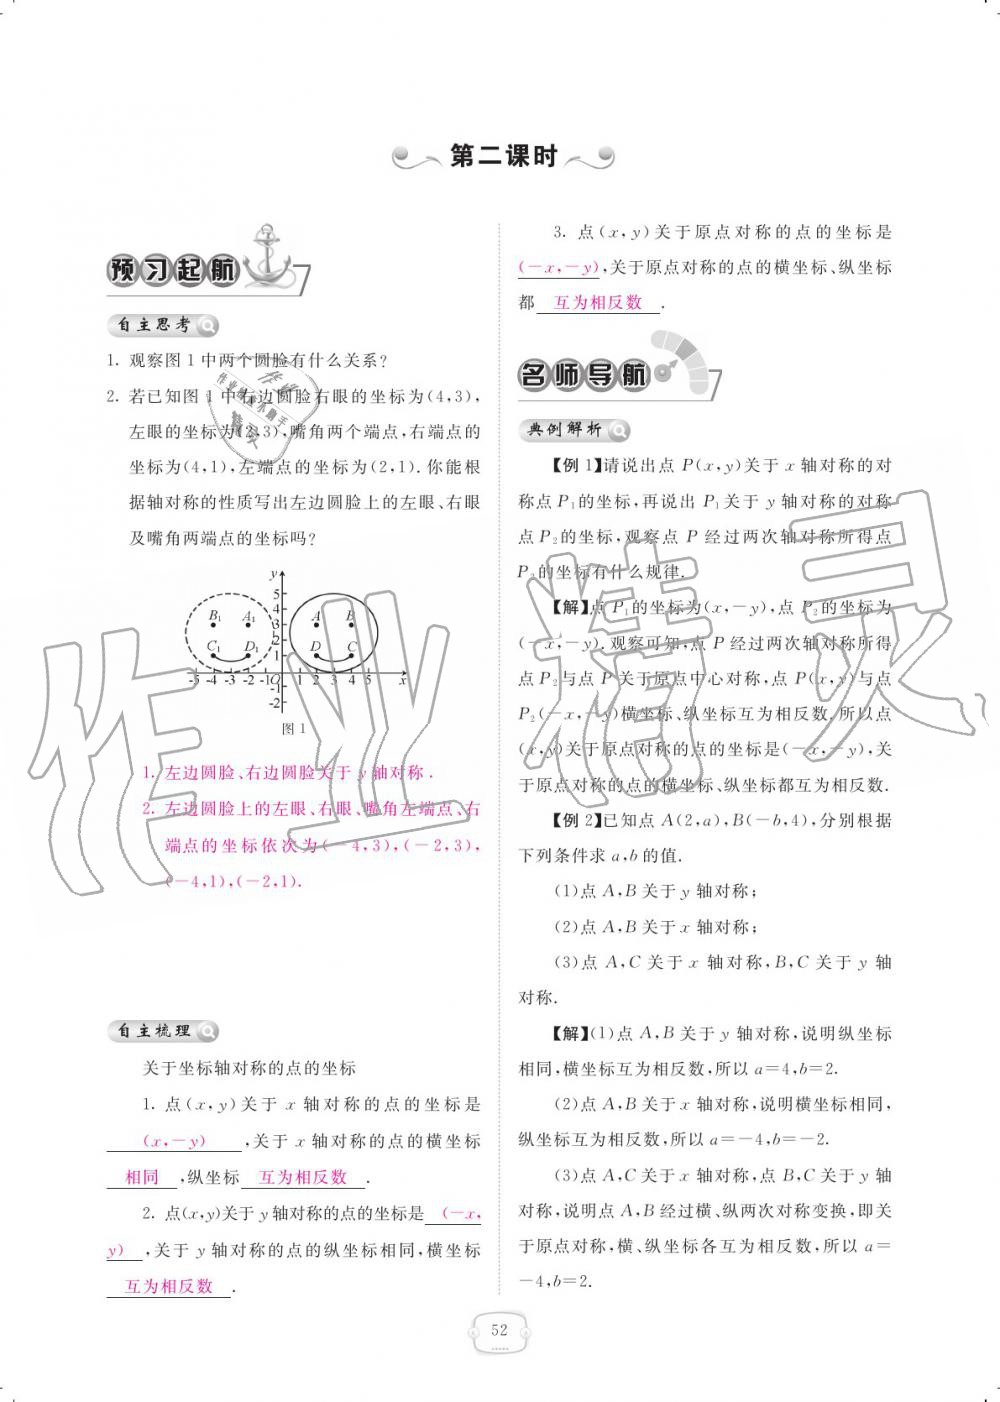 第二课时
预习起航
自主思考
1. 观察图1中两个圆脸有什么关系?
2. 若已知图1中右边圆脸右眼的坐标为(4,3),
左眼的坐标为(2,3),嘴角两个端点,右端点的
坐标为(4,1),左端点的坐标为(2,1).你能根
据轴对称的性质写出左边圆脸上的左眼、右眼
及嘴角两端点的坐标吗?
y
5
4
3
2
1
B₁ A₁ A B
C₁ D₁ D C
-5 -4 -3 -2 -1 O 1 2 3 4 5 x
-1
-2
图1
1. 左边圆脸、右边圆脸关于y轴对称.
2. 左边圆脸上的左眼、右眼、嘴角左端点、右
端点的坐标依次为(-4,3),(-2,3),
(-4,1),(-2,1).
自主梳理
关于坐标轴对称的点的坐标
1. 点(x,y)关于x轴对称的点的坐标是
(x,-y),关于x轴对称的点的横坐标
相同,纵坐标 互为相反数.
2. 点(x,y)关于y轴对称的点的坐标是 (-x,
y),关于y轴对称的点的纵坐标相同,横坐标
互为相反数.
3. 点(x,y)关于原点对称的点的坐标是
(-x,-y),关于原点对称的点的横坐标、纵坐标
都 互为相反数.
名师导航
典例解析
【例1】请说出点P(x,y)关于x轴对称的对
称点P₁的坐标,再说出P₁关于y轴对称的对称
点P₂的坐标,观察点P经过两次轴对称所得点
P₂的坐标有什么规律.
【解】点P₁的坐标为(x,-y),点P₂的坐标为
(-x,-y).观察可知,点P经过两次轴对称所得
点P₂与点P关于原点中心对称,点P(x,y)与点
P₂(-x,-y)横坐标、纵坐标互为相反数.所以点
(x,y)关于原点对称的点的坐标是(-x,-y),关
于原点对称的点的横坐标、纵坐标都互为相反数.
【例2】已知点A(2,a),B(-b,4),分别根据
下列条件求a,b的值.
(1)点A,B关于y轴对称;
(2)点A,B关于x轴对称;
(3)点A,C关于x轴对称,B,C关于y轴
对称.
【解】(1)点A,B关于y轴对称,说明纵坐标
相同,横坐标互为相反数,所以a=4,b=2.
(2)点A,B关于x轴对称,说明横坐标相同,
纵坐标互为相反数,所以a=-4,b=-2.
(3)点A,C关于x轴对称,点B,C关于y轴
对称,说明点A,B经过横、纵两次对称变换,即关
于原点对称,横、纵坐标各互为相反数,所以a=
-4,b=2.
52
作业精灵